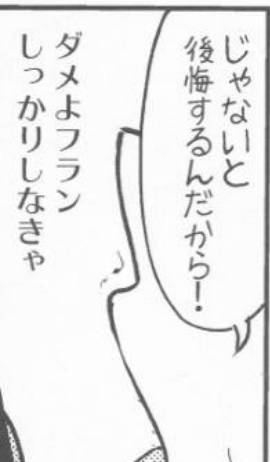 じゃないと
後悔するんだから!
ダメよフラン
しっかりしなきゃ